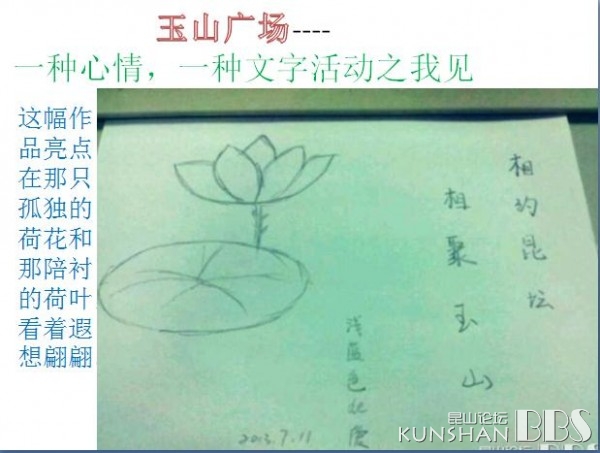 玉山广场----
一种心情，一种文字活动之我见
这幅作
品亮点
在那只
孤独的
荷花和
那陪衬
的荷叶
看着遐
想翩翩
相约昆坛
相聚玉山
浅蓝色
2013.7.11
昆山论坛
KUNSHAN BBS